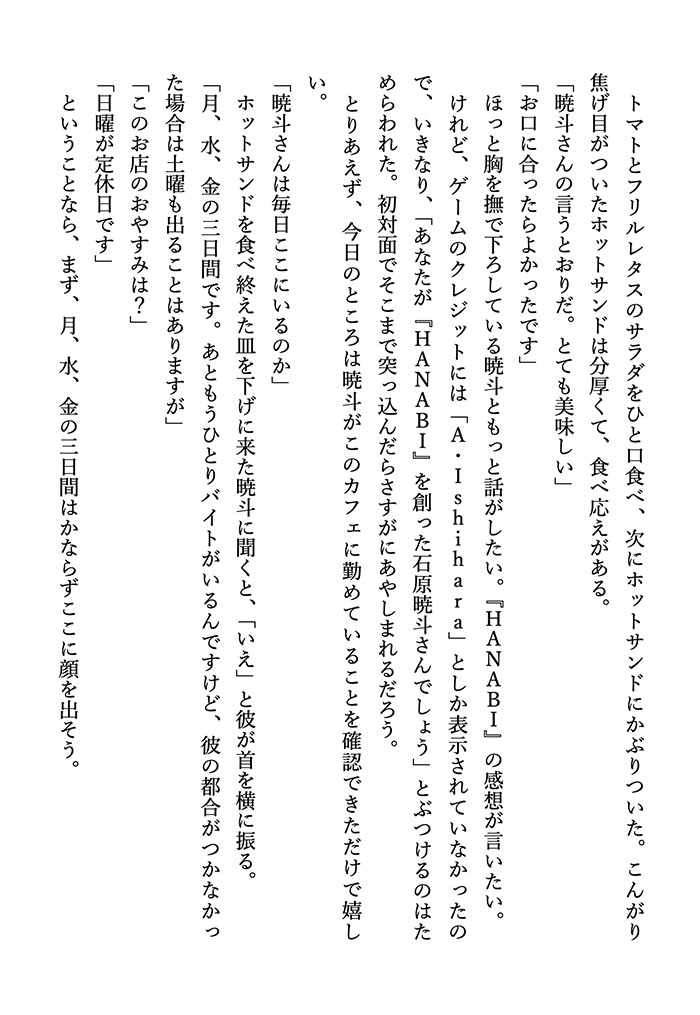 トマトとフリルレタスのサラダをひと口食べ、次にホットサンドにかぶりついた。こんがり
焦げ目がついたホットサンドは分厚くて、食べ応えがある。
「暁斗さんの言うとおりだ。とても美味しい」
「お口に合ったらよかったです」
　ほっと胸を撫で下ろしている暁斗ともっと話がしたい。『ＨＡＮＡＢＩ』の感想が言いたい。
　けれど、ゲームのクレジットには「Ａ・Ｉｓｈｉｈａｒａ」としか表示されていなかったの
で、いきなり、「あなたが『ＨＡＮＡＢＩ』を創った石原暁斗さんでしょう」とぶつけるのはた
めらわれた。初対面でそこまで突っ込んだらさすがにあやしまれるだろう。
　とりあえず、今日のところは暁斗がこのカフェに勤めていることを確認できただけで嬉し
い。
「暁斗さんは毎日ここにいるのか」
　ホットサンドを食べ終えた皿を下げに来た暁斗に聞くと、「いえ」と彼が首を横に振る。
「月、水、金の三日間です。あともうひとりバイトがいるんですけど、彼の都合がつかなかっ
た場合は土曜も出ることはありますが」
「このお店のおやすみは？」
「日曜が定休日です」
　ということなら、まず、月、水、金の三日間はかならずここに顔を出そう。